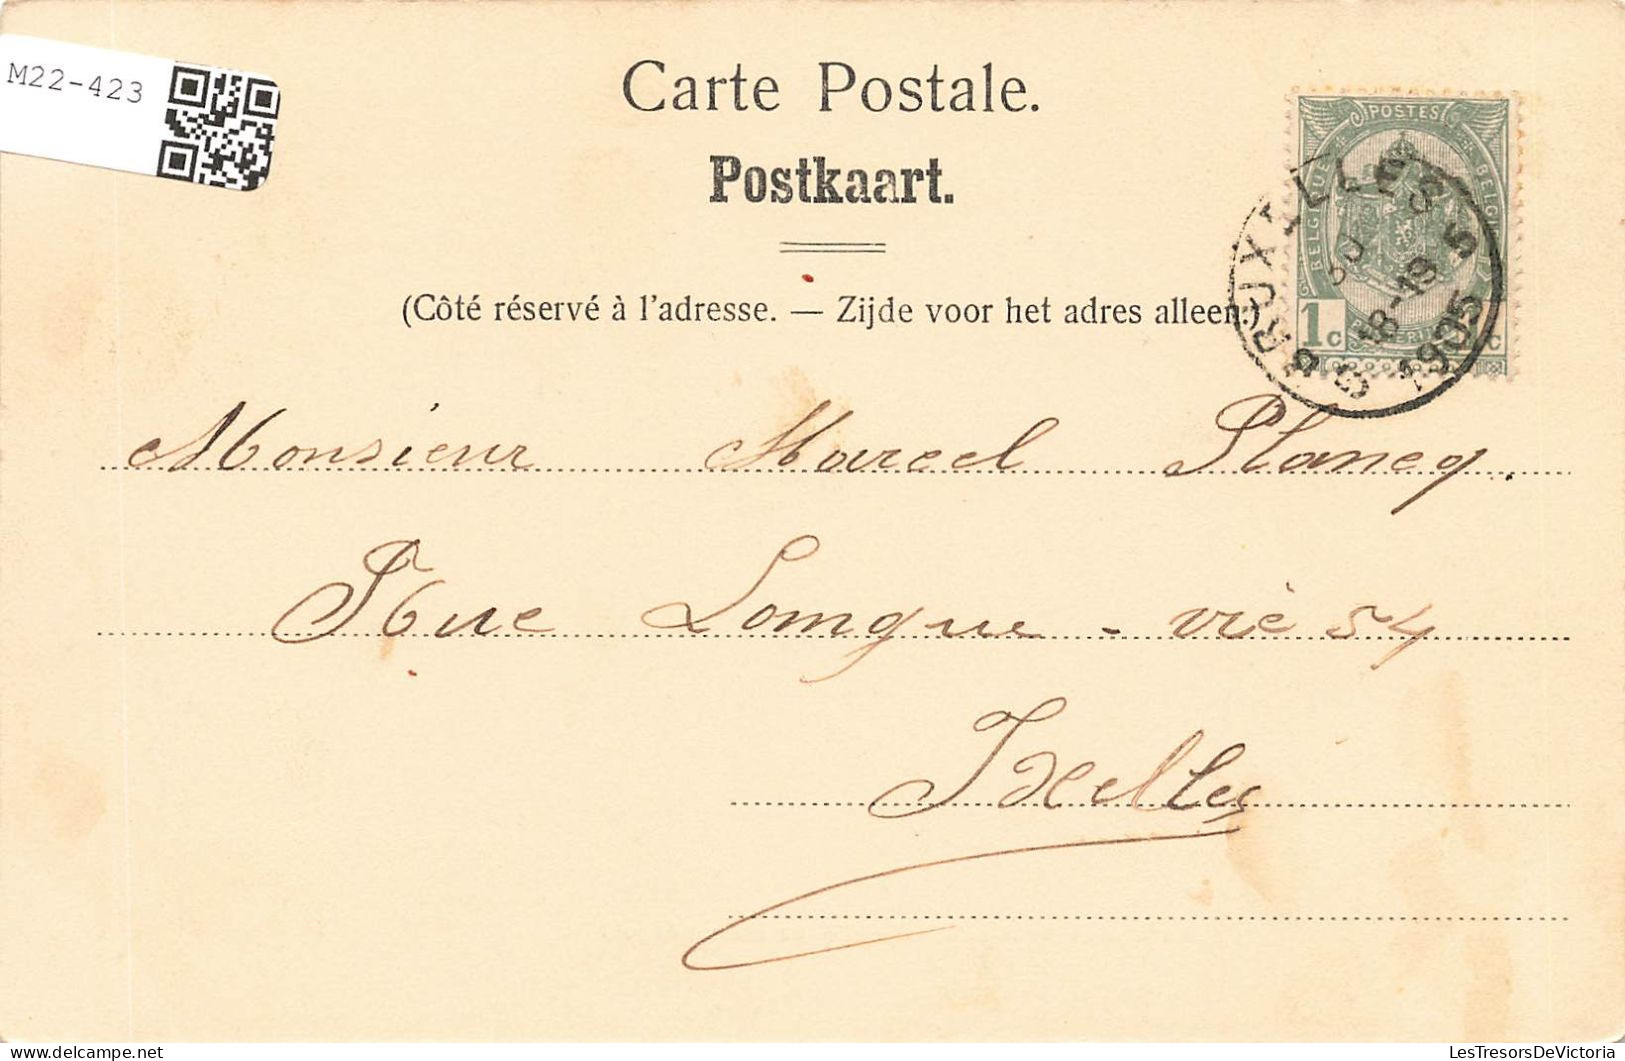 M22-423
Carte Postale.
Postkaart.
(Côté réservé à l'adresse. — Zijde voor het adres alleen
POSTES
BELGIQUE
BELGI
1c
c
BRUXELLES 5
18-19
1905
Monsieur Marcel Plancq.
Rue Longue - vie 54
Ixelles
LesTresorsDeVictoria